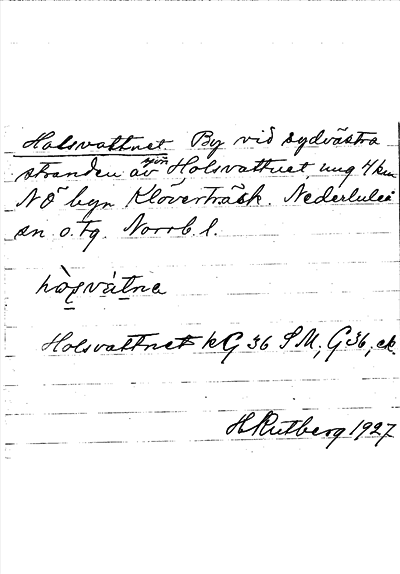 Holsvattnet. By vid sydvästra
stranden av sjön Holsvattnet, ung 4 km
NÖ byn Klöverträsk. Nederluleå
sn o. tg. Norrb. l.
Holsvattnet kG 36 SM, G 36, ek.
H Rutberg 1927